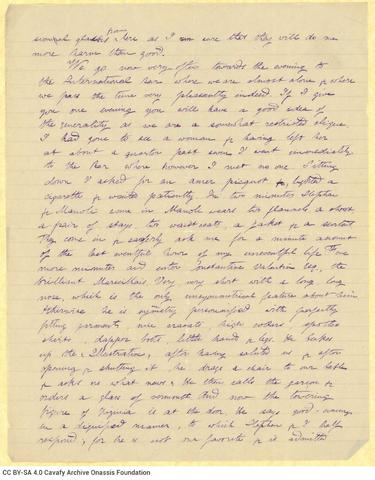 several glasses from here as I am sure that they will do me
more harm than good.
We go now very often towards the evening to
the International Bar where we are almost alone & where
we pass the time very pleasantly indeed. If I give
you one evening you will have a good idea of
the generality as we are a somewhat restricted clique
I had gone to see a woman & having left her
at about a quarter past seven I went immediately
to the Bar where however I met no one. Sitting
down I asked for an amer picquot &, lighted a
cigarette & waited patiently. In two minutes Stephen
& Manoli come in Manoli wears two flannels a
a pair of stays, two waistcoats, a jacket & a
They come in & eagerly ask me for a minute account
of the last eventful hours of my uneventful life. Two
more minutes and enter Constantine Valentin Esq. the
brilliant Marseillais. Very very short with a long long
nose, which is the only unsymmetrical feature about him
otherwise he is symetry personified with perfectly
fitting garments, nice cravats, high collars, spotless
shirts, dapper boots, little hands & legs. He takes
up the "Illustration", after having saluted us & after
opening & shutting it he drags a chair to our table
& asks us what news. He then calls the garçon &
orders a glass of vermouth. And now the towering
figure of is at the door. He says good-evening
in a dignified manner, to which Stephen & I half
respond, for he is not our favorite & is admitted
CC BY-SA 4.0 Cavafy Archive Onassis Foundation